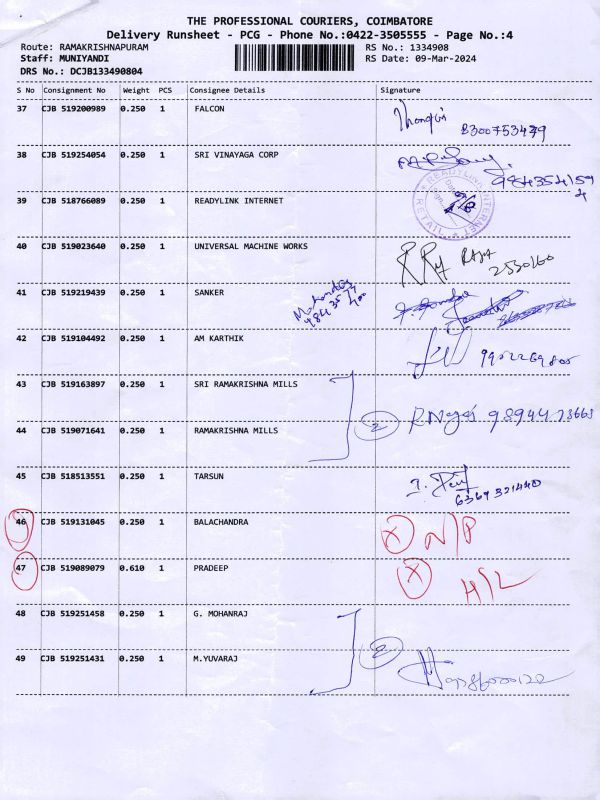 THE PROFESSIONAL COURIERS, COIMBATORE
Delivery Runsheet - PCG - Phone No.:0422-3505555 - Page No.:4
Route: RAMAKRISHNAPURAM RS No.: 1334908
Staff: MUNIYANDI RS Date: 09-Mar-2024
DRS No.: DCJB133490804
S No Consignment No Weight PCS Consignee Details Signature
37 CJB 519200989 0.250 1 FALCON
8300753479
38 CJB 519254054 0.250 1 SRI VINAYAGA CORP
39 CJB 518766089 0.250 1 READYLINK INTERNET
READYLINK INTERNET RETAIL
40 CJB 519023640 0.250 1 UNIVERSAL MACHINE WORKS
RAJA
2530160
41 CJB 519219439 0.250 1 SANKER
42 CJB 519104492 0.250 1 AM KARTHIK
43 CJB 519163897 0.250 1 SRI RAMAKRISHNA MILLS
2
44 CJB 519071641 0.250 1 RAMAKRISHNA MILLS
45 CJB 518513551 0.250 1 TARSUN
6369321440
46 CJB 519131045 0.250 1 BALACHANDRA X N/P
47 CJB 519089079 0.610 1 PRADEEP X H/L
48 CJB 519251458 0.250 1 G. MOHANRAJ
2
49 CJB 519251431 0.250 1 M.YUVARAJ